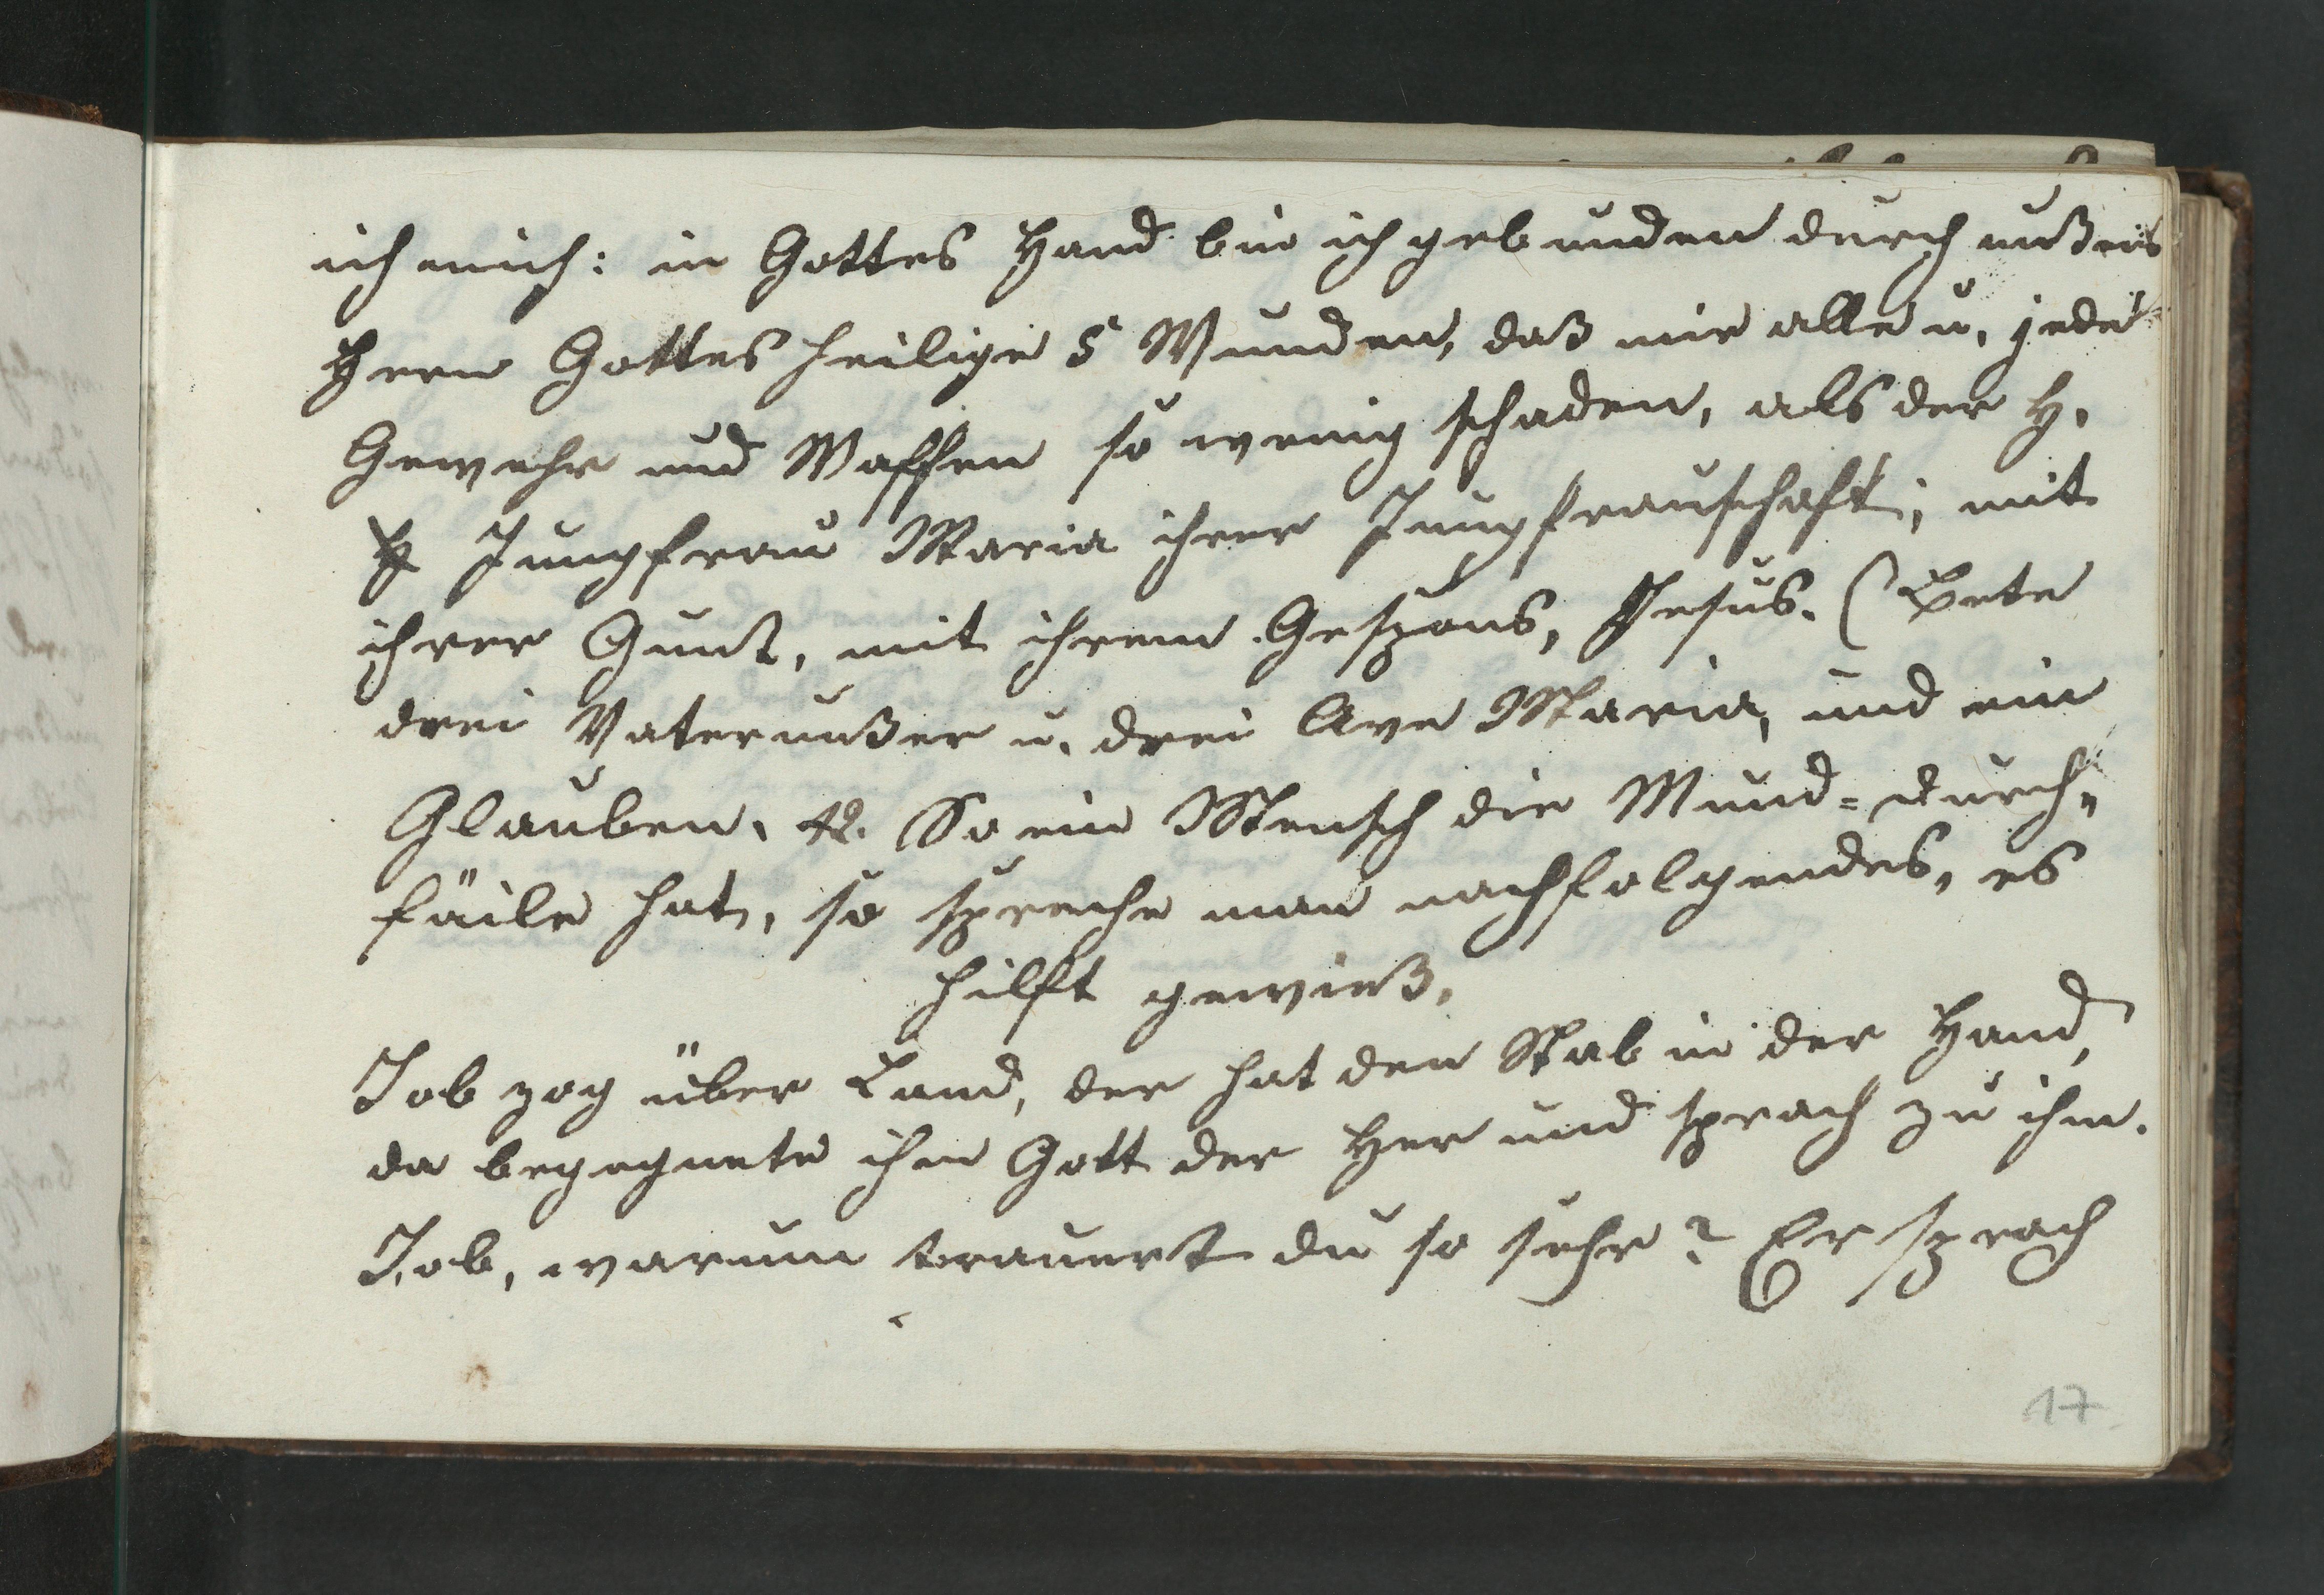 ich mich: in Gottes Hand bin ich gebunden durch unßers
Hern Gottes heilige 5 Wunden, daß mir alle u. jede
Gewehr und Waffen so wenig schaden, als der H.
Jungfrau Maria ihrer Jungfrauschaft; mit
ihrer Gunst, mit ihrem Gespons, Jesus. (Bete
drei Vaterunßer u. drei Ave Maria, und ein
Glauben. So ein Mensch die Mund=durch„
fäile hat, so spreche man nachfolgendes, es
hilft gewieß.
Job zog über Land, der hat den Stab in der Hand,
da begegnete ihm Gott der Her und sprach zu ihm.
Job, warum trauerst du so sehr? Er sprach
17